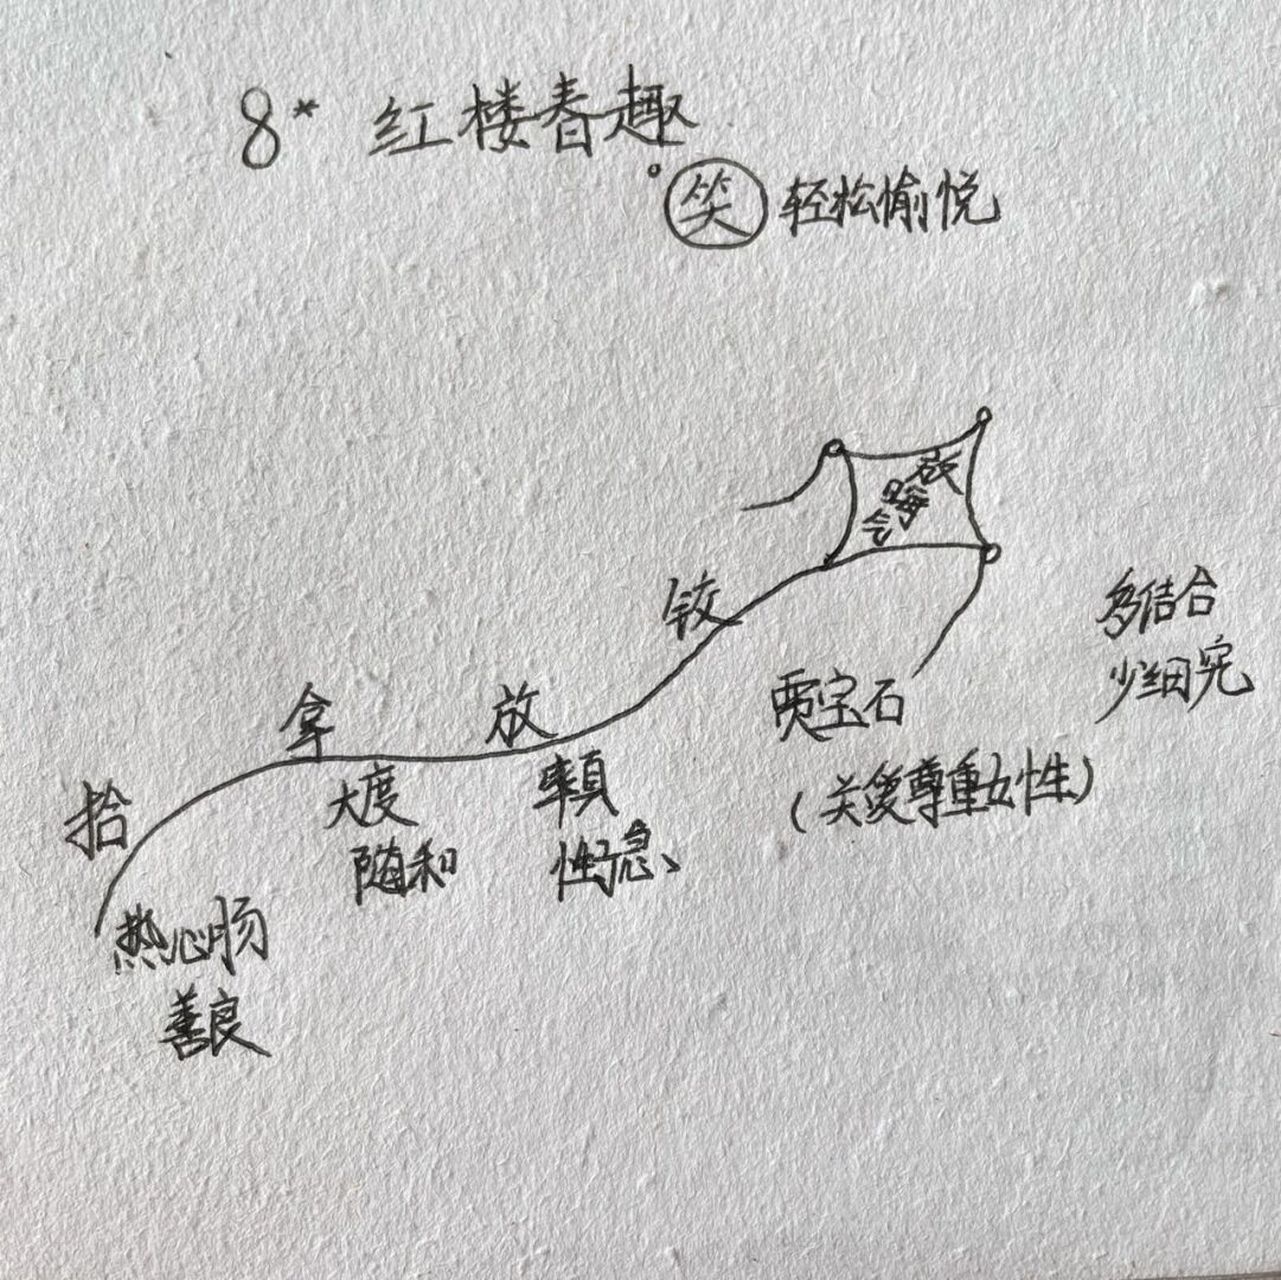 8* 红楼春趣
笑 轻松愉悦
放
晦
气
铰
多结合
少细究
拿
放
贾宝石
(关爱尊重女性)
拾
大度
随和
率真
性急
热心肠
善良